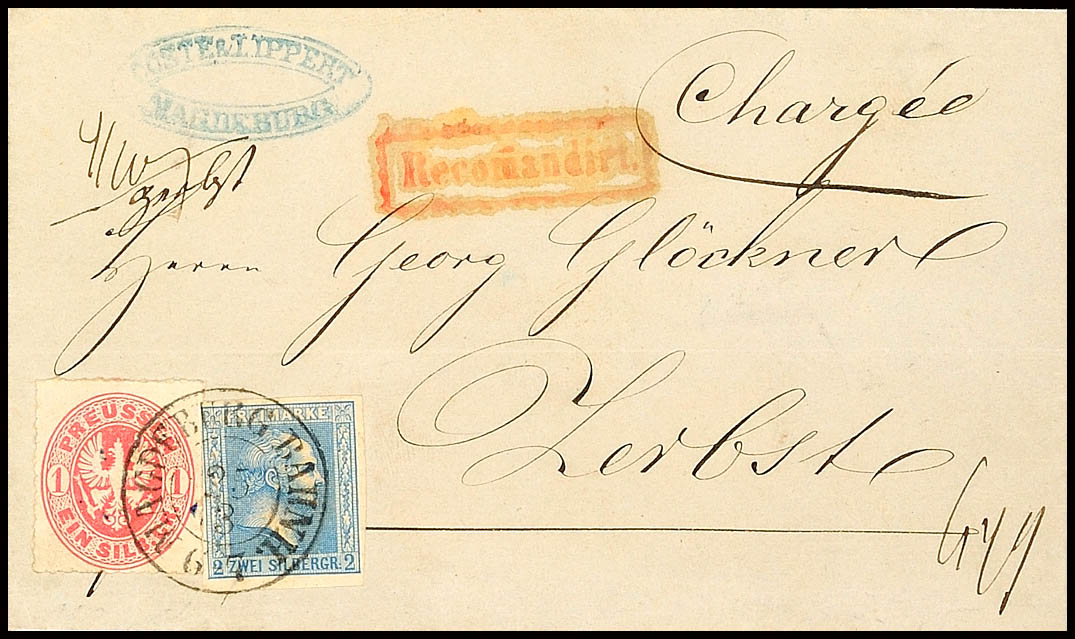 OSTE & LIPPERT
MAGDEBURG
Chargée
Recomandirt.
Zerbst
Herrn Georg Glöckner
Zerbst
PREUSS
1 1
EIN SILB
FREIMARKE
2 ZWEI SILBERGR. 2
MAGDEBURG BAHNH.